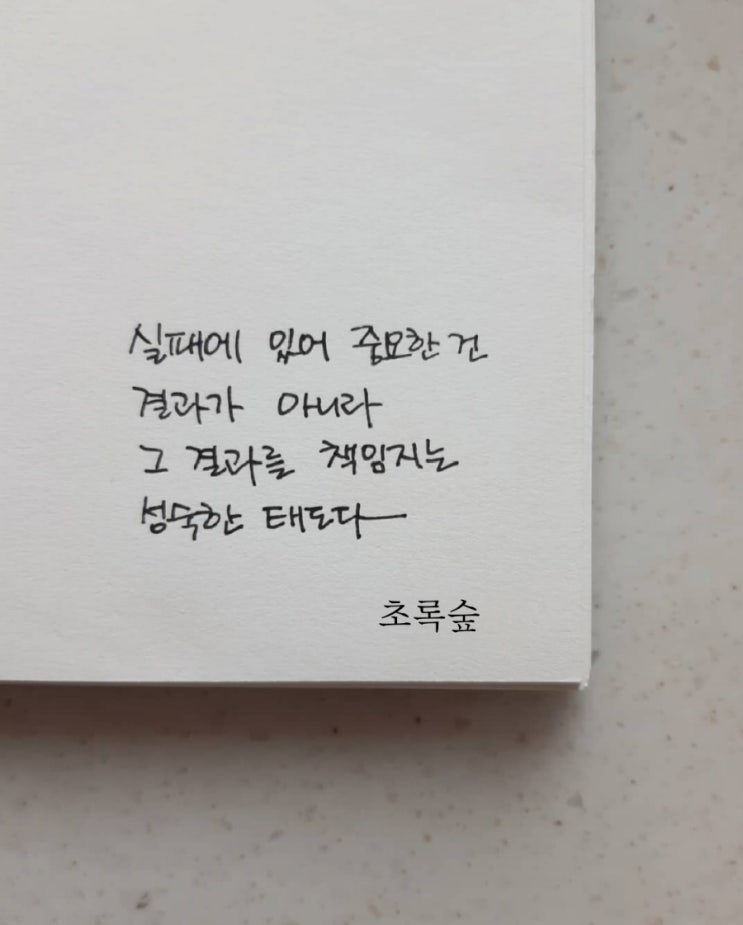 실패에 있어 중요한 건
결과가 아니라
그 결과를 책임지는
성숙한 태도다
초록숲